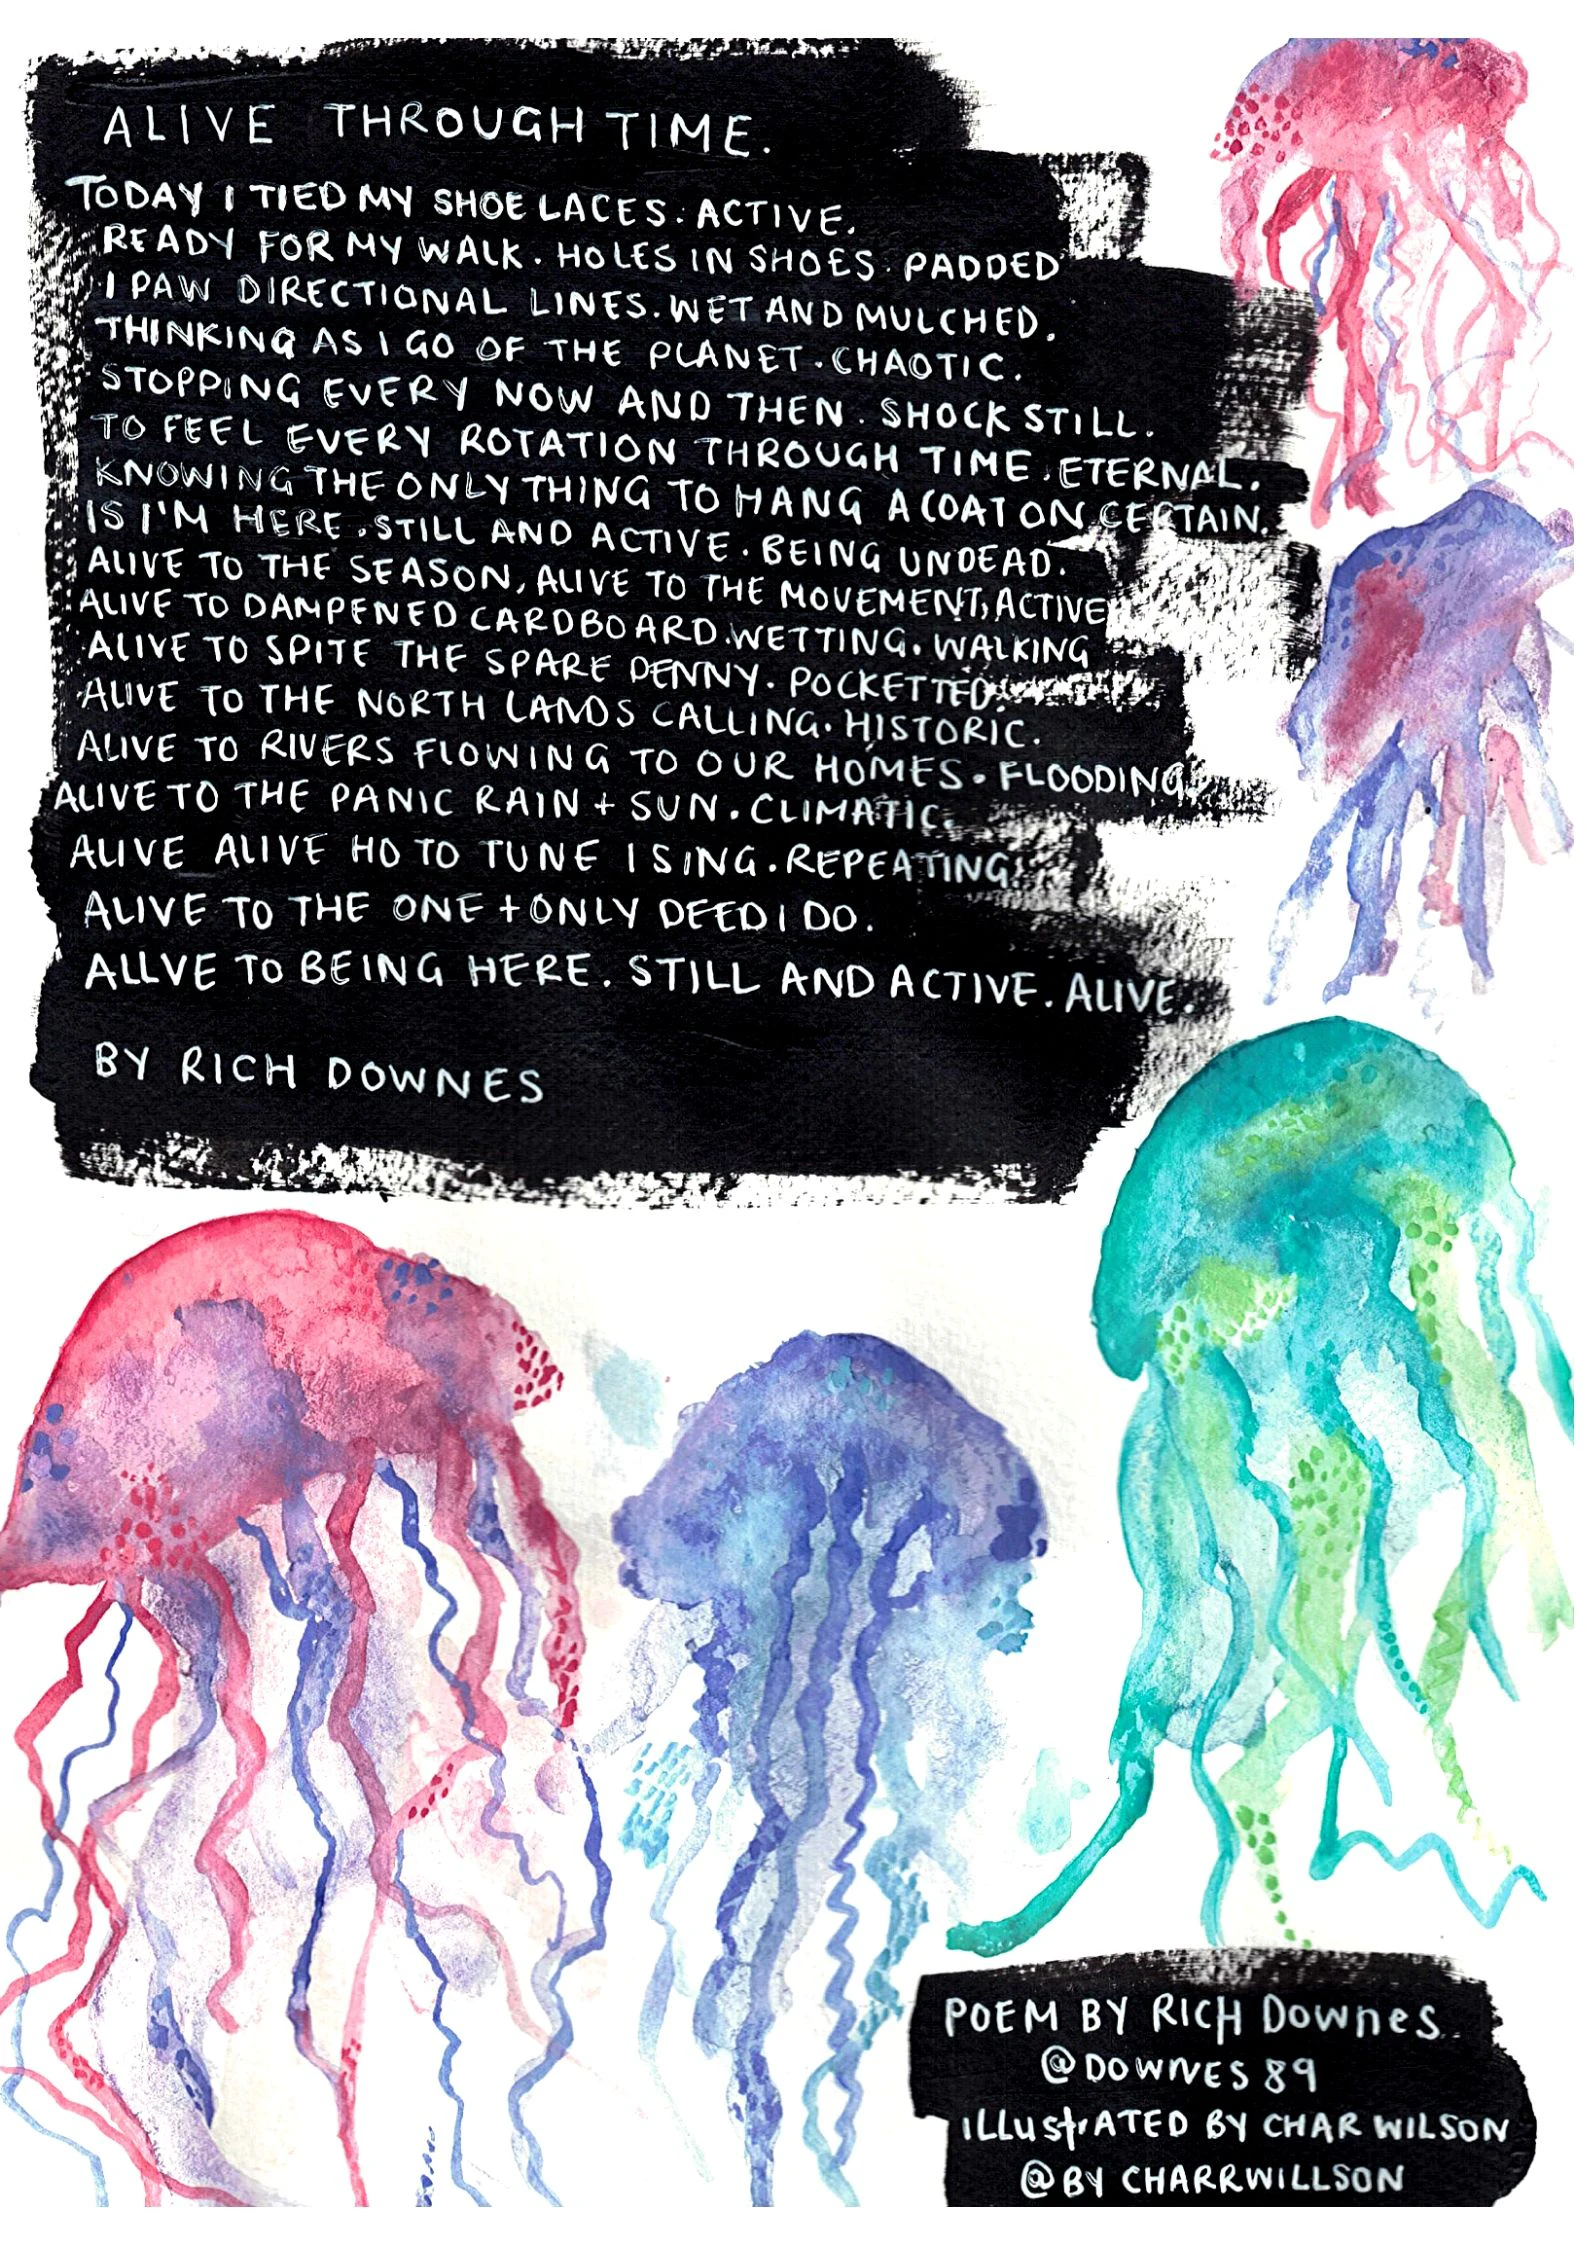 ALIVE THROUGH TIME.
TODAY I TIED MY SHOE LACES. ACTIVE.
READY FOR MY WALK. HOLES IN SHOES. PADDED
I PAW DIRECTIONAL LINES. WET AND MULCHED.
THINKING AS I GO OF THE PLANET. CHAOTIC.
STOPPING EVERY NOW AND THEN. SHOCK STILL.
TO FEEL EVERY ROTATION THROUGH TIME. ETERNAL.
KNOWING THE ONLY THING TO HANG A COAT ON CERTAIN.
IS I'M HERE. STILL AND ACTIVE. BEING UNDEAD.
ALIVE TO THE SEASON, ALIVE TO THE MOVEMENT, ACTIVE
ALIVE TO DAMPENED CARDBOARD. WETTING. WALKING
ALIVE TO SPITE THE SPARE PENNY. POCKETTED.
ALIVE TO THE NORTH LANDS CALLING. HISTORIC.
ALIVE TO RIVERS FLOWING TO OUR HOMES. FLOODING.
ALIVE TO THE PANIC RAIN + SUN. CLIMATIC.
ALIVE ALIVE HO TO TUNE I SING. REPEATING.
ALIVE TO THE ONE + ONLY DEED I DO.
ALLVE TO BEING HERE. STILL AND ACTIVE. ALIVE.
BY RICH DOWNES
POEM BY RICH DOWNES.
@DOWNES 89
ILLUSTRATED BY CHAR WILSON
@BY CHARRWILLSON